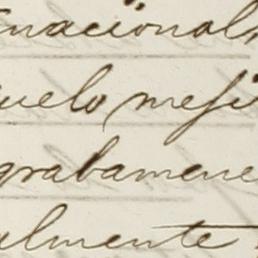 nacional
uelo meji
grabamene
almente